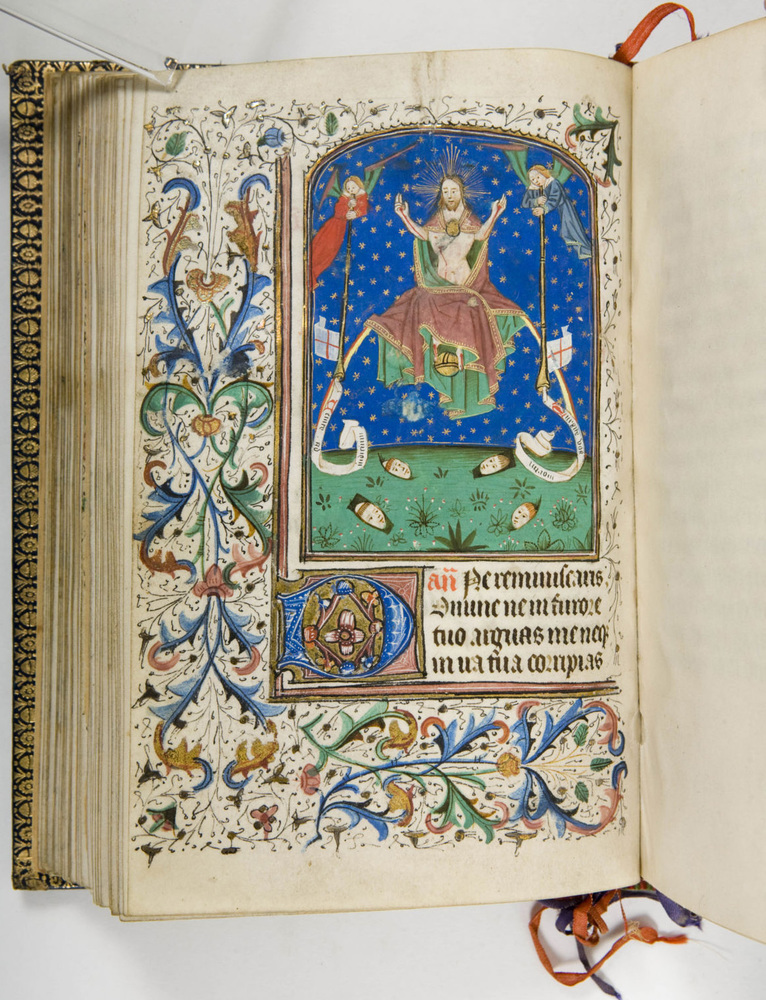 añ Ne reminiscaris
Domine ne in furore
tuo arguas me neq
in ira tua corripias